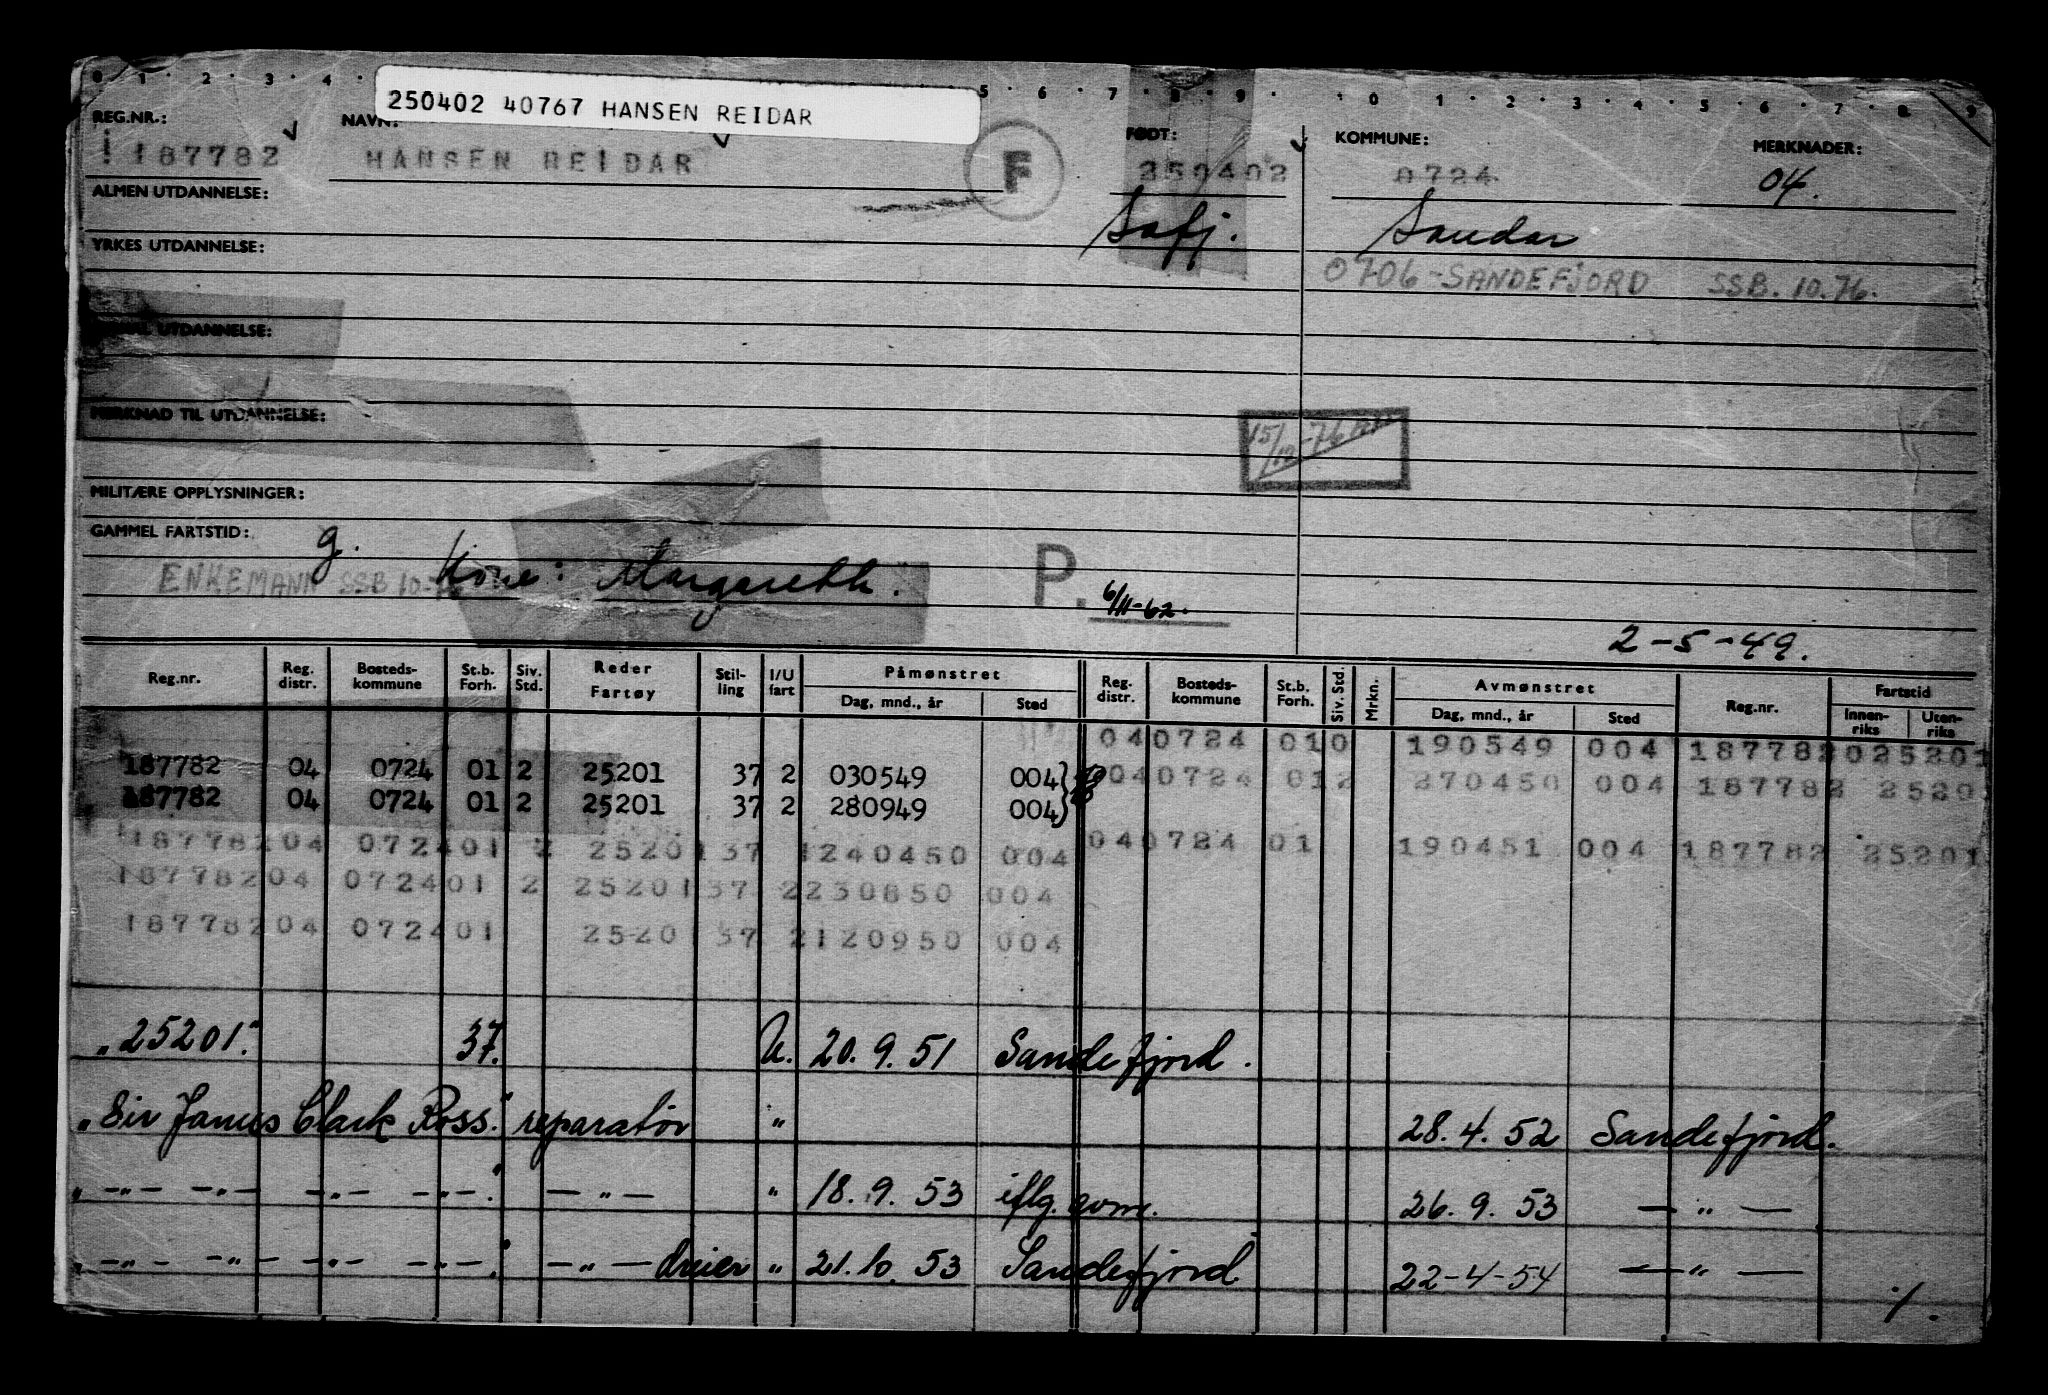 0 · 1 · 2 · 3 · 4 · 5 · 6 · 7 · 8 · 9 · 1 0 · 1 · 2 · 3 · 4 · 5 · 6 · 7 · 8 · 9
250402 40767 HANSEN REIDAR
REG.NR.: NAVN: FØDT: KOMMUNE: MERKNADER:
187782 HANSEN REIDAR F 250402 0724 04.
ALMEN UTDANNELSE: Safj. Sandar
YRKES UTDANNELSE:
0706-SANDEFJORD SSB. 10.76.
UTDANNELSE:
MERKNAD TIL UTDANNELSE:
15/12-76
MILITÆRE OPPLYSNINGER:
GAMMEL FARTSTID: g.
ENKEMANN SSB 10-76 Kone: Margareth. P. 6/11-62.
2-5-49.
Reg.nr. Reg. distr. Bosteds-kommune St.b. Forh. Siv. Std. Reder Fartøy Stil-ling I/U fart Påmønstret Dag, mnd., år Sted Reg. distr. Bosteds-kommune St.b. Forh. Siv. Std. Mrkn. Avmønstret Dag, mnd., år Sted Reg.nr. Fartstid Innen-riks Uten-riks
040724 010 190549 004 187782025201
187782 04 0724 01 2 25201 37 2 030549 004 040724 012 270450 004 187782 2520
187782 04 0724 01 2 25201 37 2 280949 004
18778204 072401 2 25201 37 1240450 004 040724 01 190451 004 187782 25201
18778204 072401 2 25201 37 2230850 004
18778204 072401 25201 37 2120950 004
„25201." 37. U. 20. 9. 51 Sandefjord.
„Sir James Clark Ross." reparatør " 28. 4. 52 Sandefjord.
„ —"— —"— —"— —"—." — " — " 18. 9. 53 iflg. 26. 9. 53 — " —
„ —"— —"— —"— —"—." — " — dreier " 21. 10. 53 Sandefjord 22-4-54 — " —